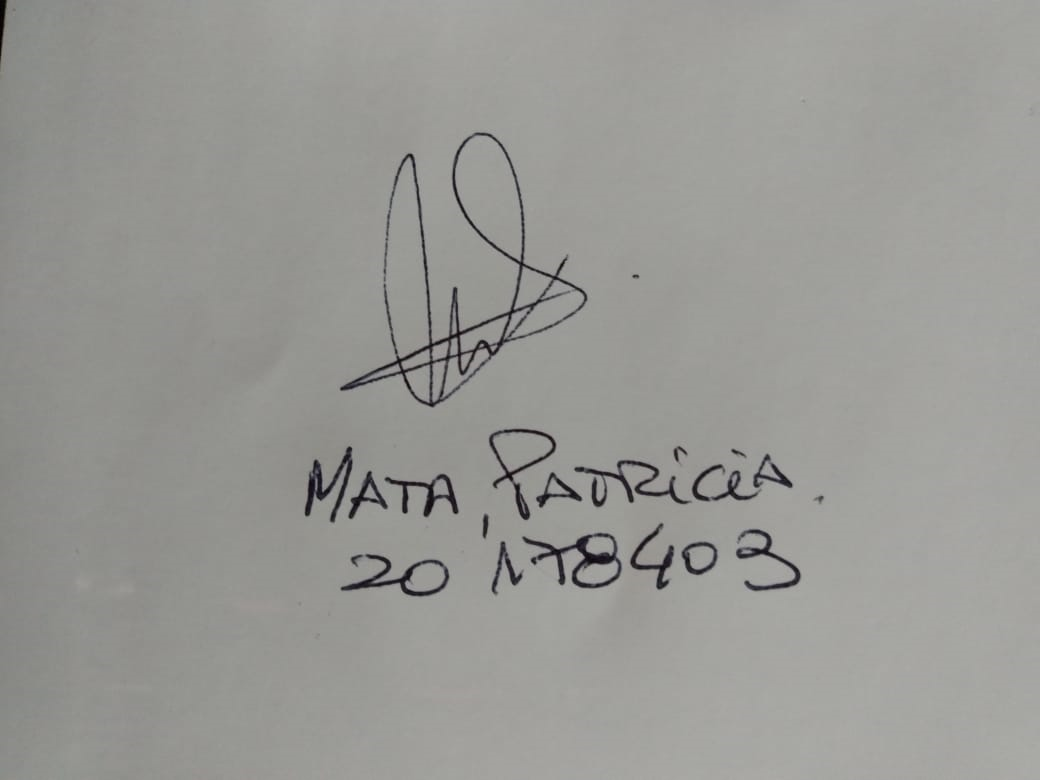 MATA, PATRiCiA.
20'178403